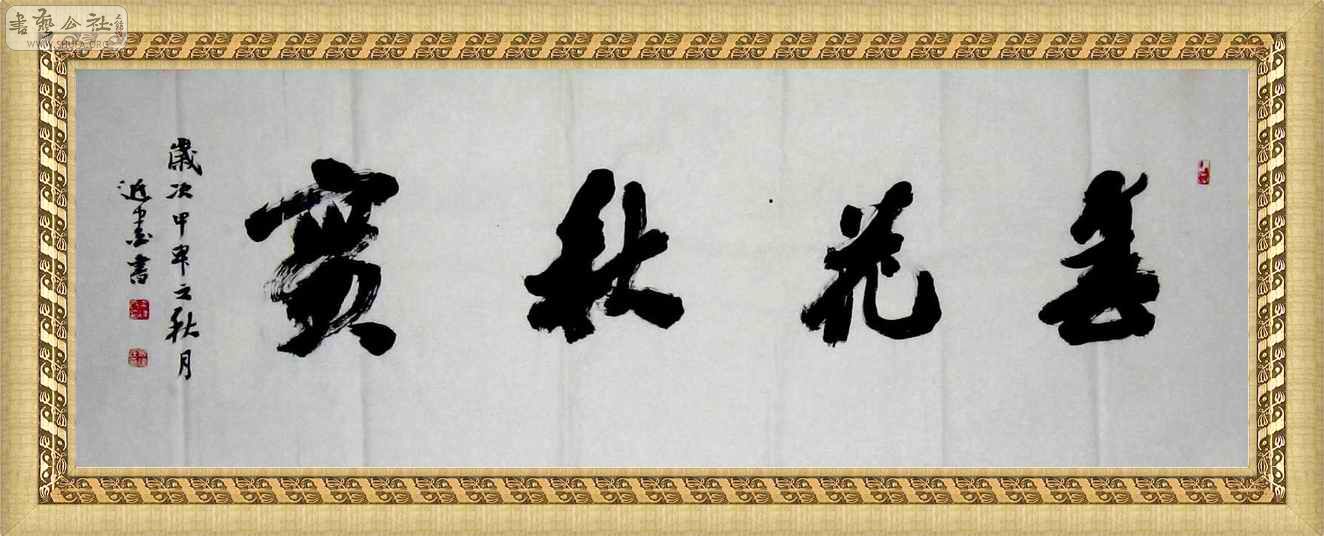 書藝公社
WWW.SHUFA.ORG
春花秋實
歲次甲午之秋月
近書